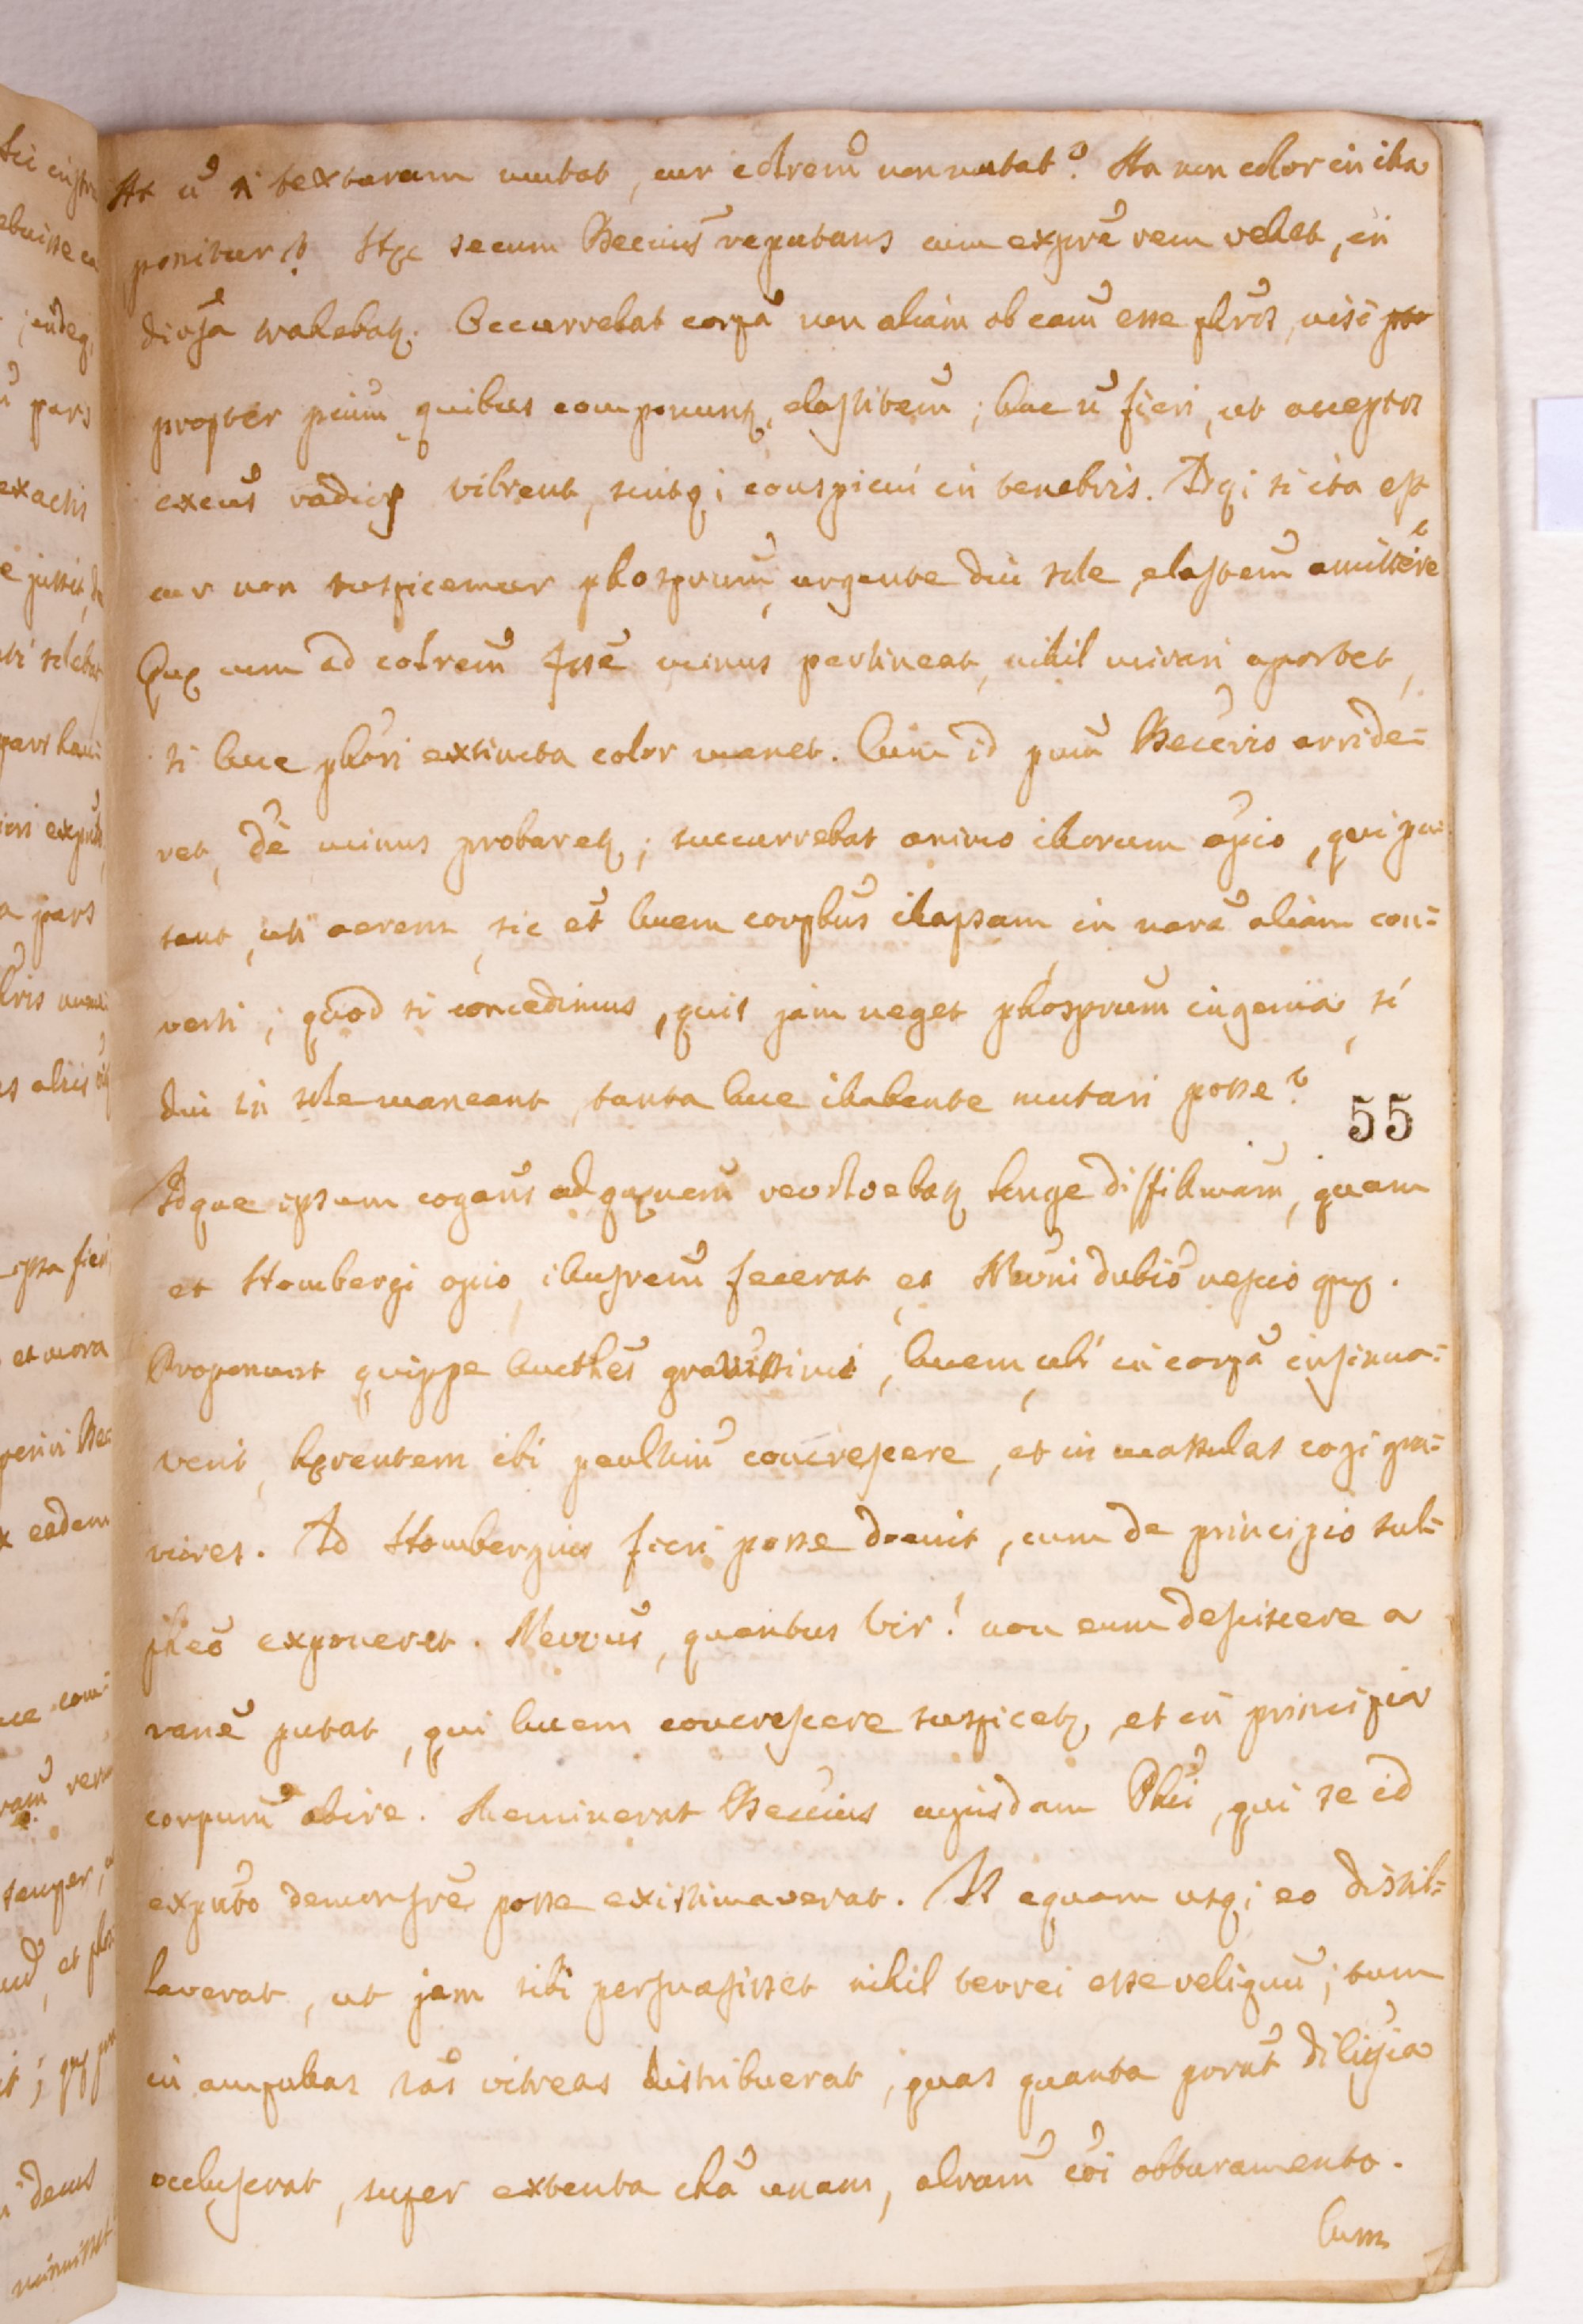 At ū si texturam mutat, cur colrem̄ non mutat? An non color in illa
ponitur? Hæc secum Beccius̄ reputans cum expr̄e rem vellet, in
div̄sa trahebatq. Occurrebat corp̄a non aliam ob cam̄ esse phr̄is, nisi
propter p̄cium quibus componunt̄, elastitem̄; hinc ū fieri, ut acceptis
exeus̄ radiis vibrent, sintq; conspicui in tenebris. Atq; si ita est
cur non suspicemur phosprum̄, urgente diu sole, elastem̄ amittere
Quæ cum ad colrem̄ fss̄e minus pertineat, nihil mirari oportet,
si luce phōri extincta color manet. Cum id prim̄ Beccrio arride=
ret, dē minus probaret̄; succurrebat animo illorum op̄io, qui pu=
tant, uti aerem, sic et̄ lucem corpbus̄ illapsam in nar̄a aliam con=
verti; quod si concedimus, quis jam neget phosprum̄ ingenia, si
diu in sole maneant, tanta luce illabente mutari posse?
55
Idque ipsum cogans̄ ad quæm̄ revolvebatq̄ longe difficillimam̄, quam
et Hombergi op̄io illustrem̄ fecerat et Newoni dubio nescio quæ.
Proponunt quippe Aucthes̄ gravissimi, lucem, ubi in corp̄a insinua=
verit, hærentem ibi paullim̄ concrescere, et in massulas cogi gra=
viores. Id Hombergius fieri posse docuit, cum de principio sul=
pheō exponeret. Newnus̄, quantus Vir! non eum desciscere a
ranē putat, qui lucem concrescere suspicet̄, et in principia
corpum̄ abire. Meminerat Beccius cujusdam Phī, qui se id
expto̅ demonstr̄e posse existimaverat. Is aquam usq; eo distil=
laverat, ut jam sibi persuasisset nihil terrei esse reliquū; tum
in ampullas vitreas distribuerat, quas quanta porat̄ diligia̅
occluserat, super extenta illa manu, alram̄ c̄oi obturamento.
Cum